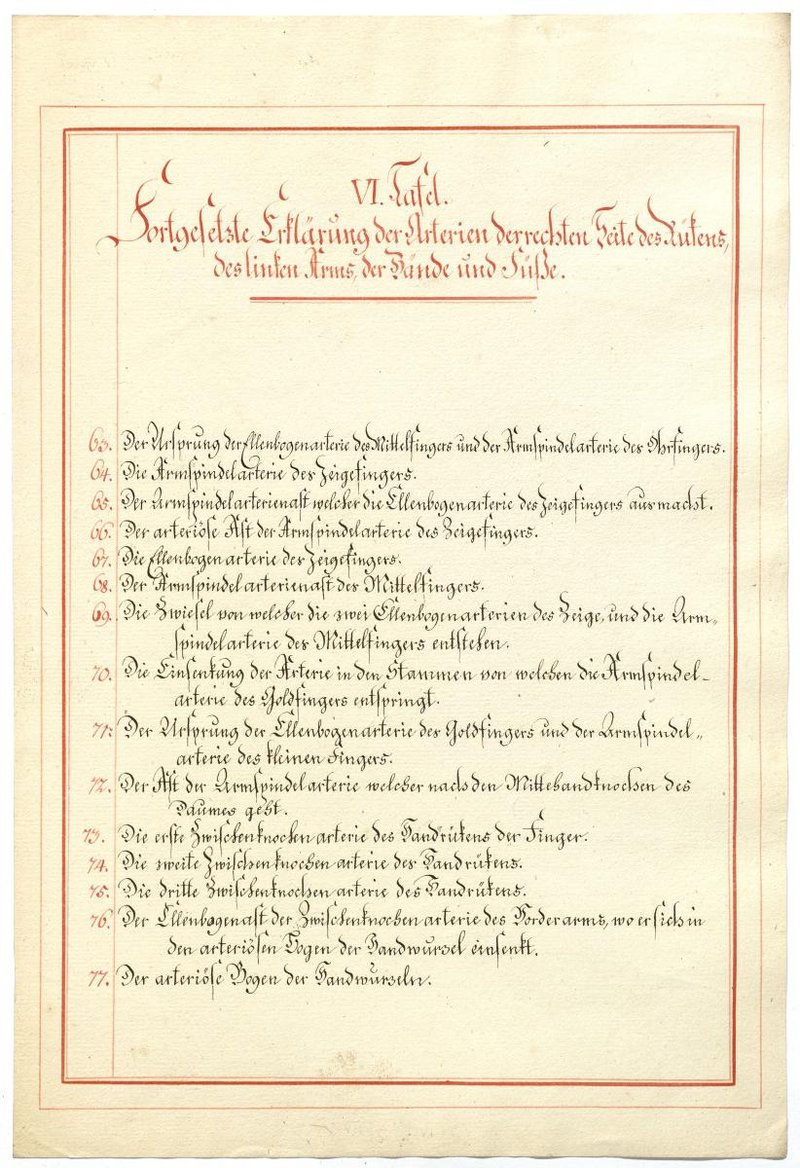 VI. Tafel.
Fortgesetzte Erklärung der Arterien der rechten Seite des Rükens,
des linken Arms, der Hände und Füße.
63. Der Ursprung der Ellenbogenarterie des Mittelfingers und der Armspindelarterie des Ohrfingers.
64. Die Armspindelarterie des Zeigefingers.
65. Der Armspindelarterienast welcher die Ellenbogenarterie des Zeigefingers ausmacht.
66. Der arteriöse Ast der Armspindelarterie des Zeigefingers.
67. Die Ellenbogenarterie des Zeigefingers.
68. Der Armspindelarterienast des Mittelfingers.
69. Die Zwiesel von welcher die zwei Ellenbogenarterien des Zeige, und die Arm„
spindelarterie des Mittelfingers entstehen.
70. Die Einsenkung der Arterie in den Stammen von welchen die Armspindel-
arterie des Goldfingers entspringt.
71. Der Ursprung der Ellenbogenarterie des Goldfingers und der Armspindel„
arterie des kleinen Fingers.
72. Der Ast der Armspindelarterie welcher nach den Mittelhandknochen des
Daumes geht.
73. Die erste Zwischenknochenarterie des Handrükens der Finger.
74. Die zweite Zwischenknochenarterie des Handrükens.
75. Die dritte Zwischenknochenarterie des Handrükens.
76. Der Ellenbogenast der Zwischenknochenarterie des Vorderarms, wo er sich in
den arteriösen Bogen der Handwurzel einsenkt.
77. Der arteriöse Bogen der Handwurzeln.